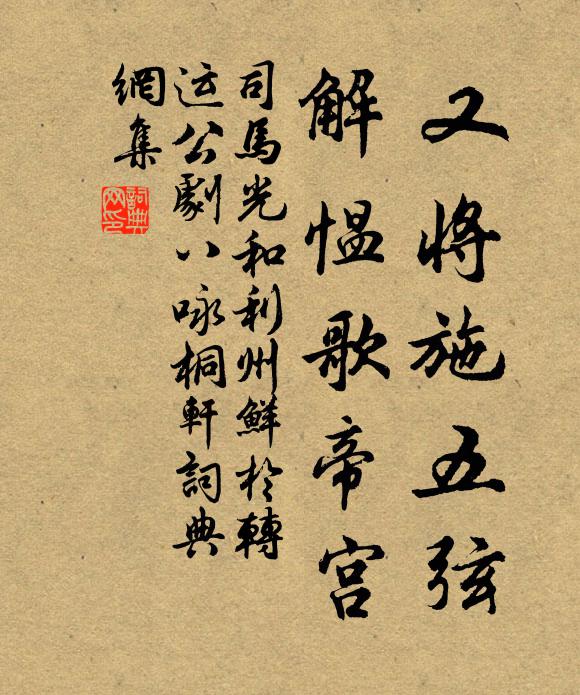 又將施五弦
解愠歌帝宮
司馬光和利州鮮於轉
运公劇八咏桐軒詞典
網集
詞典網印